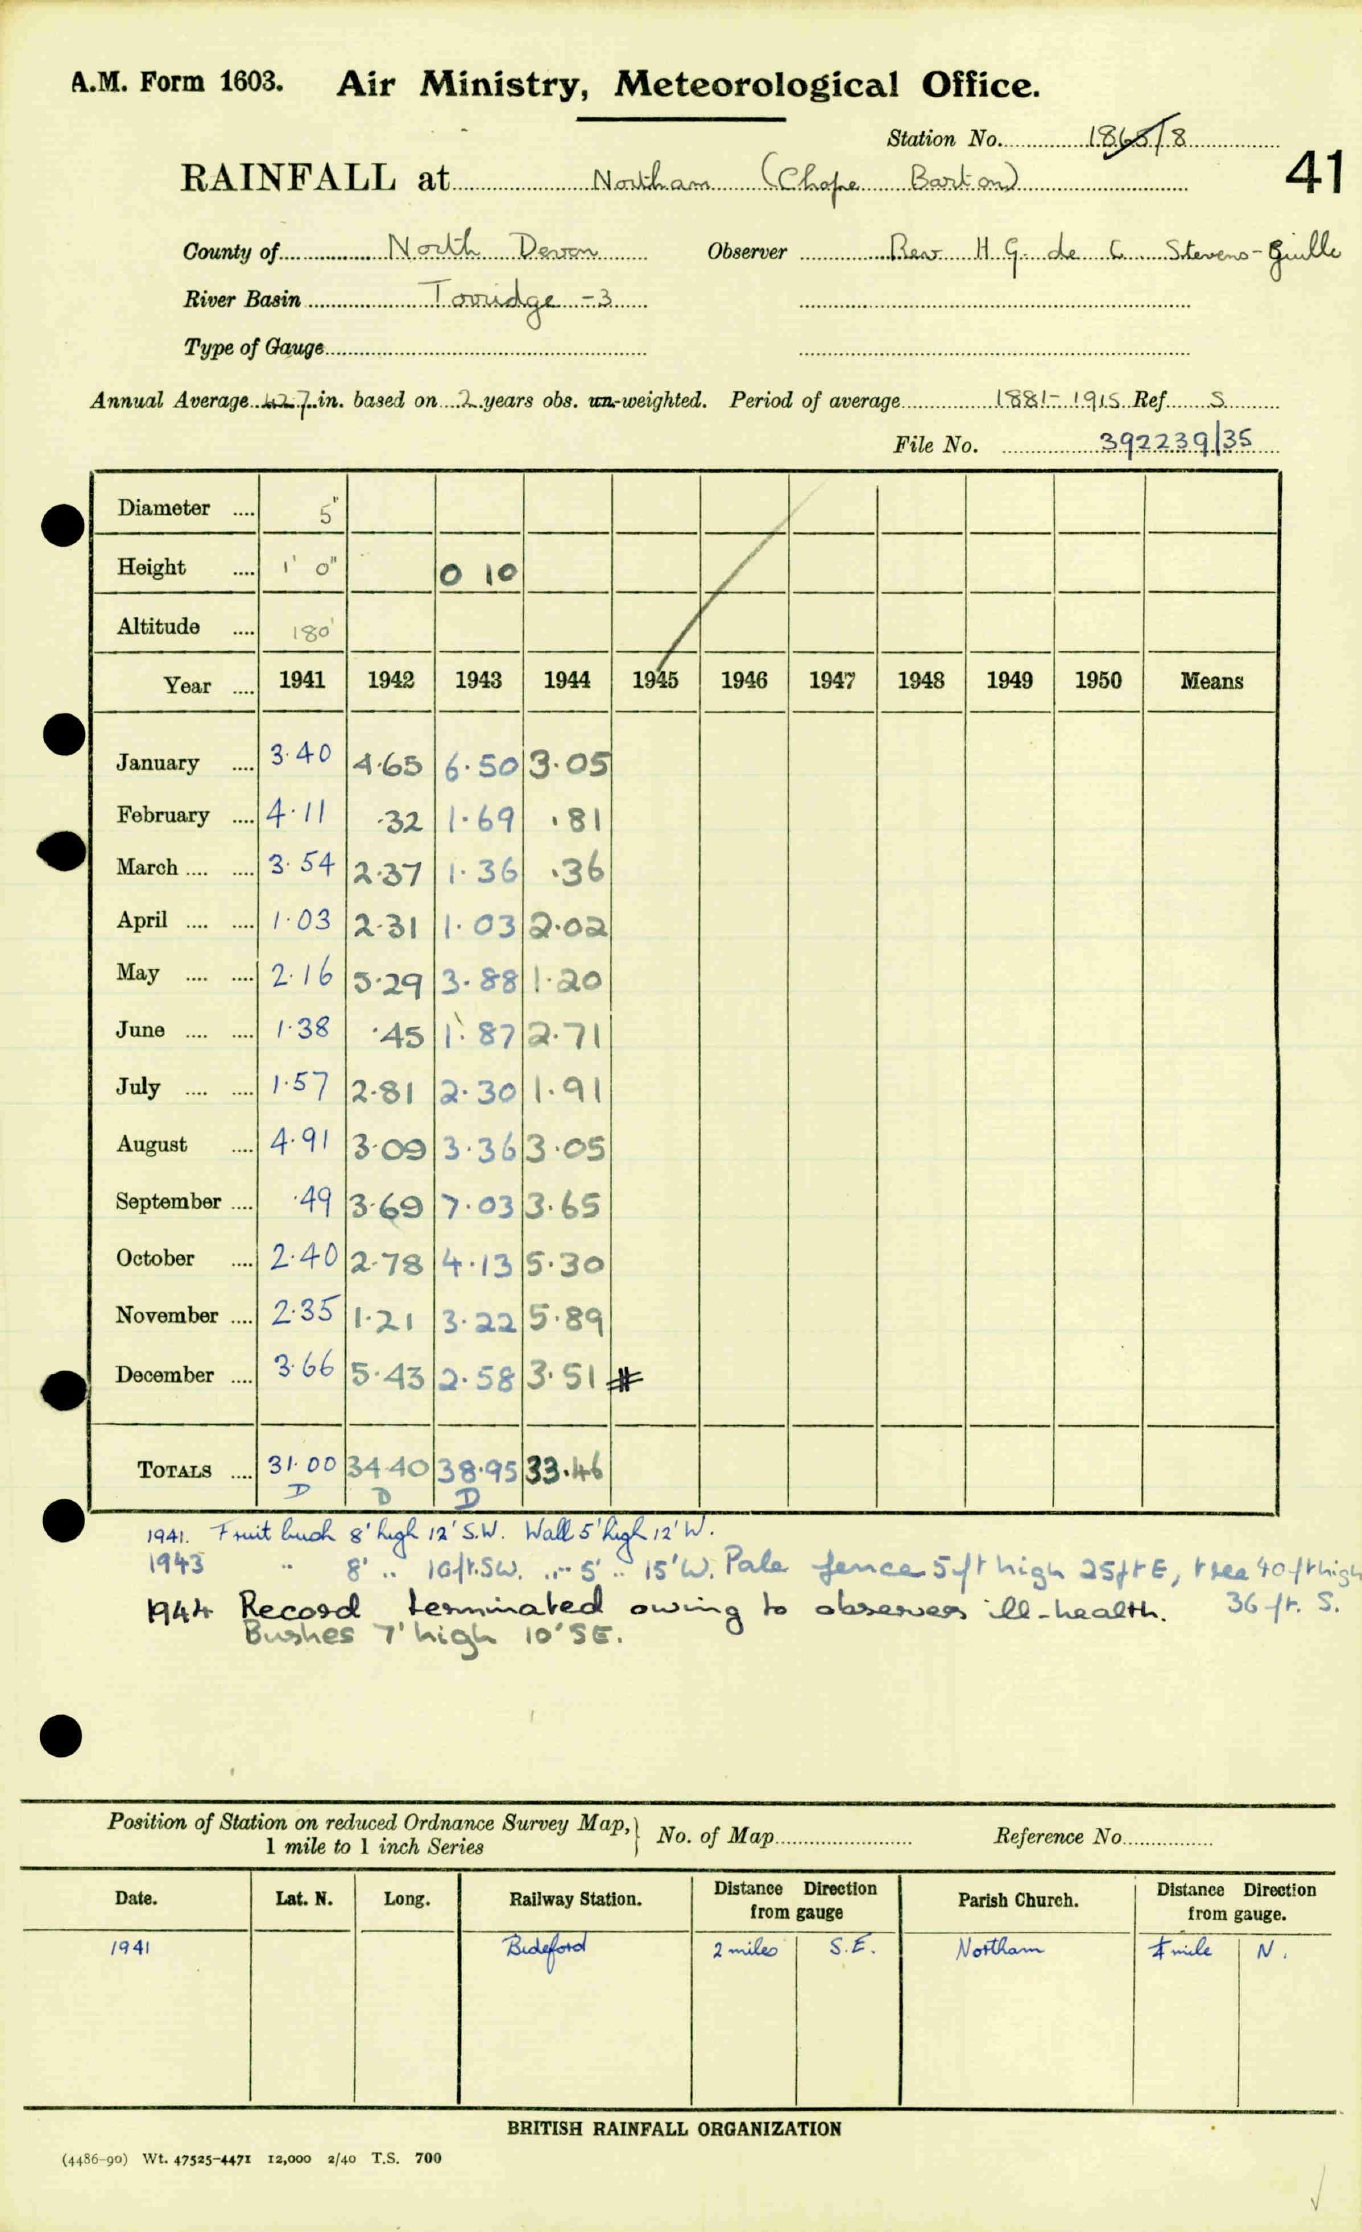 A.M. Form 1603. Air Ministry, Meteorological Office.
Station No. 1868/8
RAINFALL at Northam (Chope Barton) 41
County of North Devon Observer Rev H G de C Stevens-Guille
River Basin Torridge -3
Type of Gauge
Annual Average 42.7 in. based on 2 years obs. un-weighted. Period of average 1881-1915 Ref S
File No. 392239/35
Diameter .... 5"
Height .... 1' 0" 0 10
Altitude .... 180'
Year .... 1941 1942 1943 1944 1945 1946 1947 1948 1949 1950 Means
January .... 3.40 4.65 6.50 3.05
February .... 4.11 .32 1.69 .81
March .... .... 3.54 2.37 1.36 .36
April .... .... 1.03 2.31 1.03 2.02
May .... .... 2.16 5.29 3.88 1.20
June .... .... 1.38 .45 1.87 2.71
July .... .... 1.57 2.81 2.30 1.91
August .... 4.91 3.09 3.36 3.05
September .... .49 3.69 7.03 3.65
October .... 2.40 2.78 4.13 5.30
November .... 2.35 1.21 3.22 5.89
December .... 3.66 5.43 2.58 3.51 #
TOTALS .... 31.00 34.40 38.95 33.46
D D D
1941. Fruit bush 8' high 12' S.W. Wall 5' high 12' W.
1943 " 8' " 10ft. SW. " 5' " 15' W. Pale fence 5 ft high 25ft E, tree 40 ft high
36 ft. S.
1944 Record terminated owing to observers ill-health.
Bushes 7' high 10' SE.
Position of Station on reduced Ordnance Survey Map, 1 mile to 1 inch Series No. of Map Reference No.
Date. Lat. N. Long. Railway Station. Distance Direction from gauge Parish Church. Distance Direction from gauge.
1941 Bideford 2 miles S.E. Northam mile N.
BRITISH RAINFALL ORGANIZATION
(4486-90) Wt. 47525-4471 12,000 2/40 T.S. 700